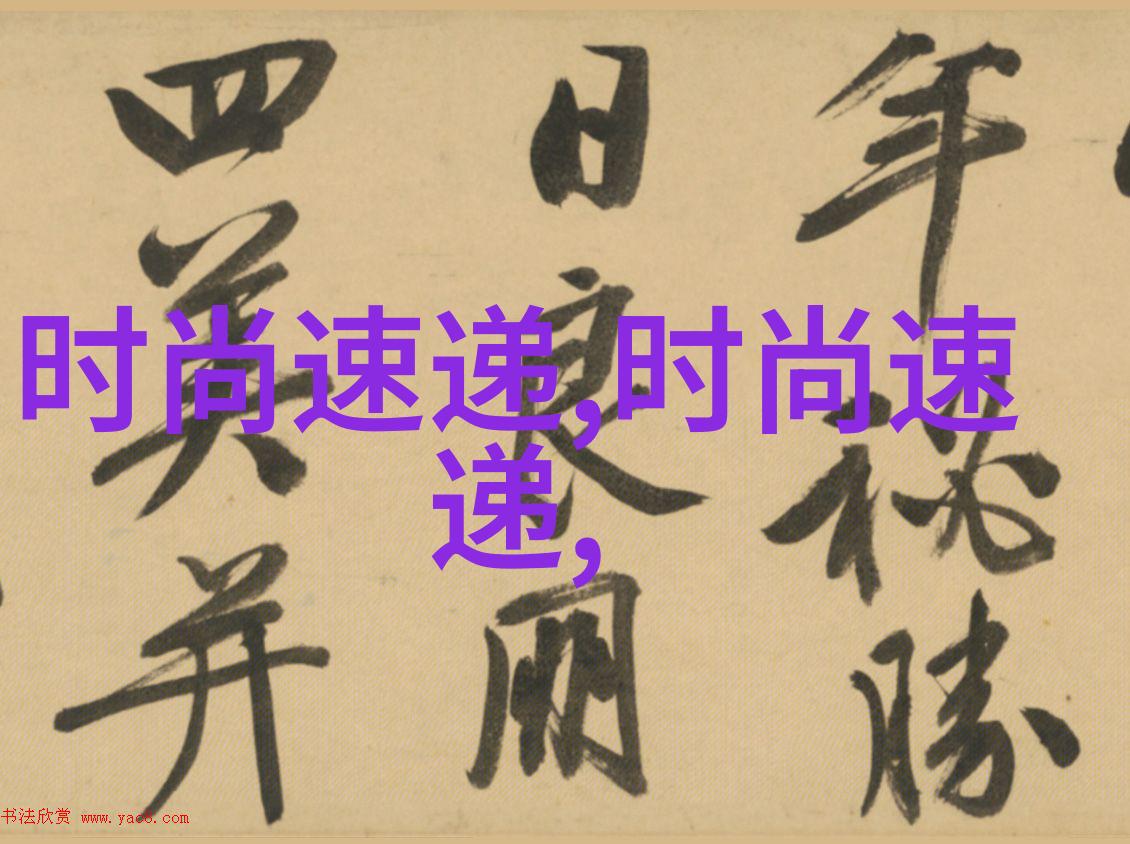 年秘勝
日良
四美并
时尚速递,时尚速
递,
书法欣赏 www.yac8.com